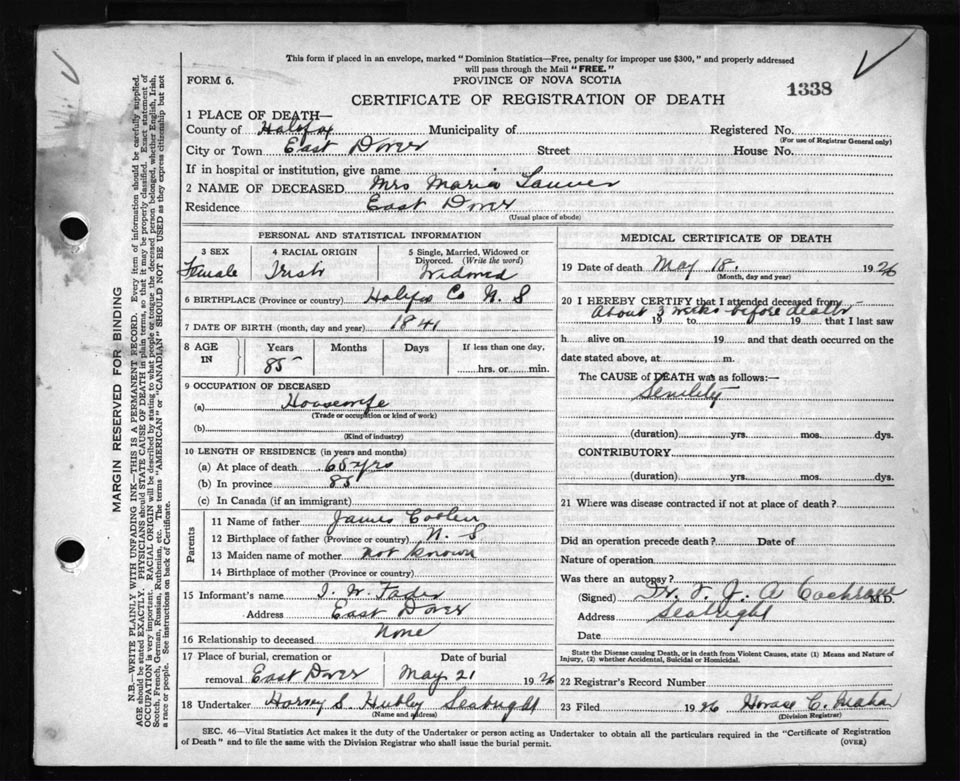 This form if placed in an envelope, marked "Dominion Statistics—Free, penalty for improper use $300," and properly addressed
will pass through the Mail "FREE."
FORM 6.
PROVINCE OF NOVA SCOTIA
CERTIFICATE OF REGISTRATION OF DEATH
1338
1 PLACE OF DEATH—
County of Halifax Municipality of Registered No.
(For use of Registrar General only)
City or Town East Dover Street House No.
If in hospital or institution, give name
2 NAME OF DECEASED Mrs Maria
Residence East Dover
(Usual place of abode)
PERSONAL AND STATISTICAL INFORMATION
3 SEX Female
4 RACIAL ORIGIN Irish
5 Single, Married, Widowed or Divorced. (Write the word) Widowed
6 BIRTHPLACE (Province or country) Halifax Co N. S
7 DATE OF BIRTH (month, day and year) 1841
8 AGE IN Years 85 Months Days If less than one day, hrs. or min.
9 OCCUPATION OF DECEASED
(a) Housewife
(Trade or occupation or kind of work)
(b)
(Kind of industry)
10 LENGTH OF RESIDENCE (in years and months)
(a) At place of death 65 yrs
(b) In province 85
(c) In Canada (if an immigrant)
Parents
11 Name of father James
12 Birthplace of father (Province or country) N. S
13 Maiden name of mother not known
14 Birthplace of mother (Province or country)
15 Informant's name Fader
Address East Dover
16 Relationship to deceased None
17 Place of burial, cremation or removal East Dover
Date of burial May 21 1926
18 Undertaker Harvey S. Hubley Seabright
(Name and address)
MEDICAL CERTIFICATE OF DEATH
19 Date of death May 18. 1926
(Month, day and year)
20 I HEREBY CERTIFY that I attended deceased from
About 3 weeks before death
19 to 19 that I last saw
h alive on 19 and that death occurred on the
date stated above, at m.
The CAUSE of DEATH was as follows:—
Senility
(duration) yrs. mos. dys.
CONTRIBUTORY
(duration) yrs. mos. dys.
21 Where was disease contracted if not at place of death?
Did an operation precede death? Date of
Nature of operation
Was there an autopsy?
(Signed) Dr. A M.D.
Address Seabright
Date
State the Disease causing Death, or in death from Violent Causes, state (1) Means and Nature of
Injury, (2) whether Accidental, Suicidal or Homicidal.
22 Registrar's Record Number
23 Filed 1926 Horace C.
(Division Registrar)
SEC. 46—Vital Statistics Act makes it the duty of the Undertaker or person acting as Undertaker to obtain all the particulars required in the "Certificate of Registration
of Death" and to file the same with the Division Registrar who shall issue the burial permit.
(OVER)
MARGIN RESERVED FOR BINDING
N.B.—WRITE PLAINLY WITH UNFADING INK—THIS IS A PERMANENT RECORD. Every item of information should be carefully supplied.
AGE should be stated EXACTLY. PHYSICIANS should STATE CAUSE OF DEATH in plain terms, so that it may be properly classified. Exact statement of
OCCUPATION is very important. RACIAL ORIGIN will be described by stating to what people or tongue the deceased person belonged, whether English, Irish,
Scotch, French, German, Russian, Ruthenian, etc. The terms "AMERICAN" or "CANADIAN" SHOULD NOT BE USED as they express citizenship but not
a race or people. See instructions on back of Certificate.